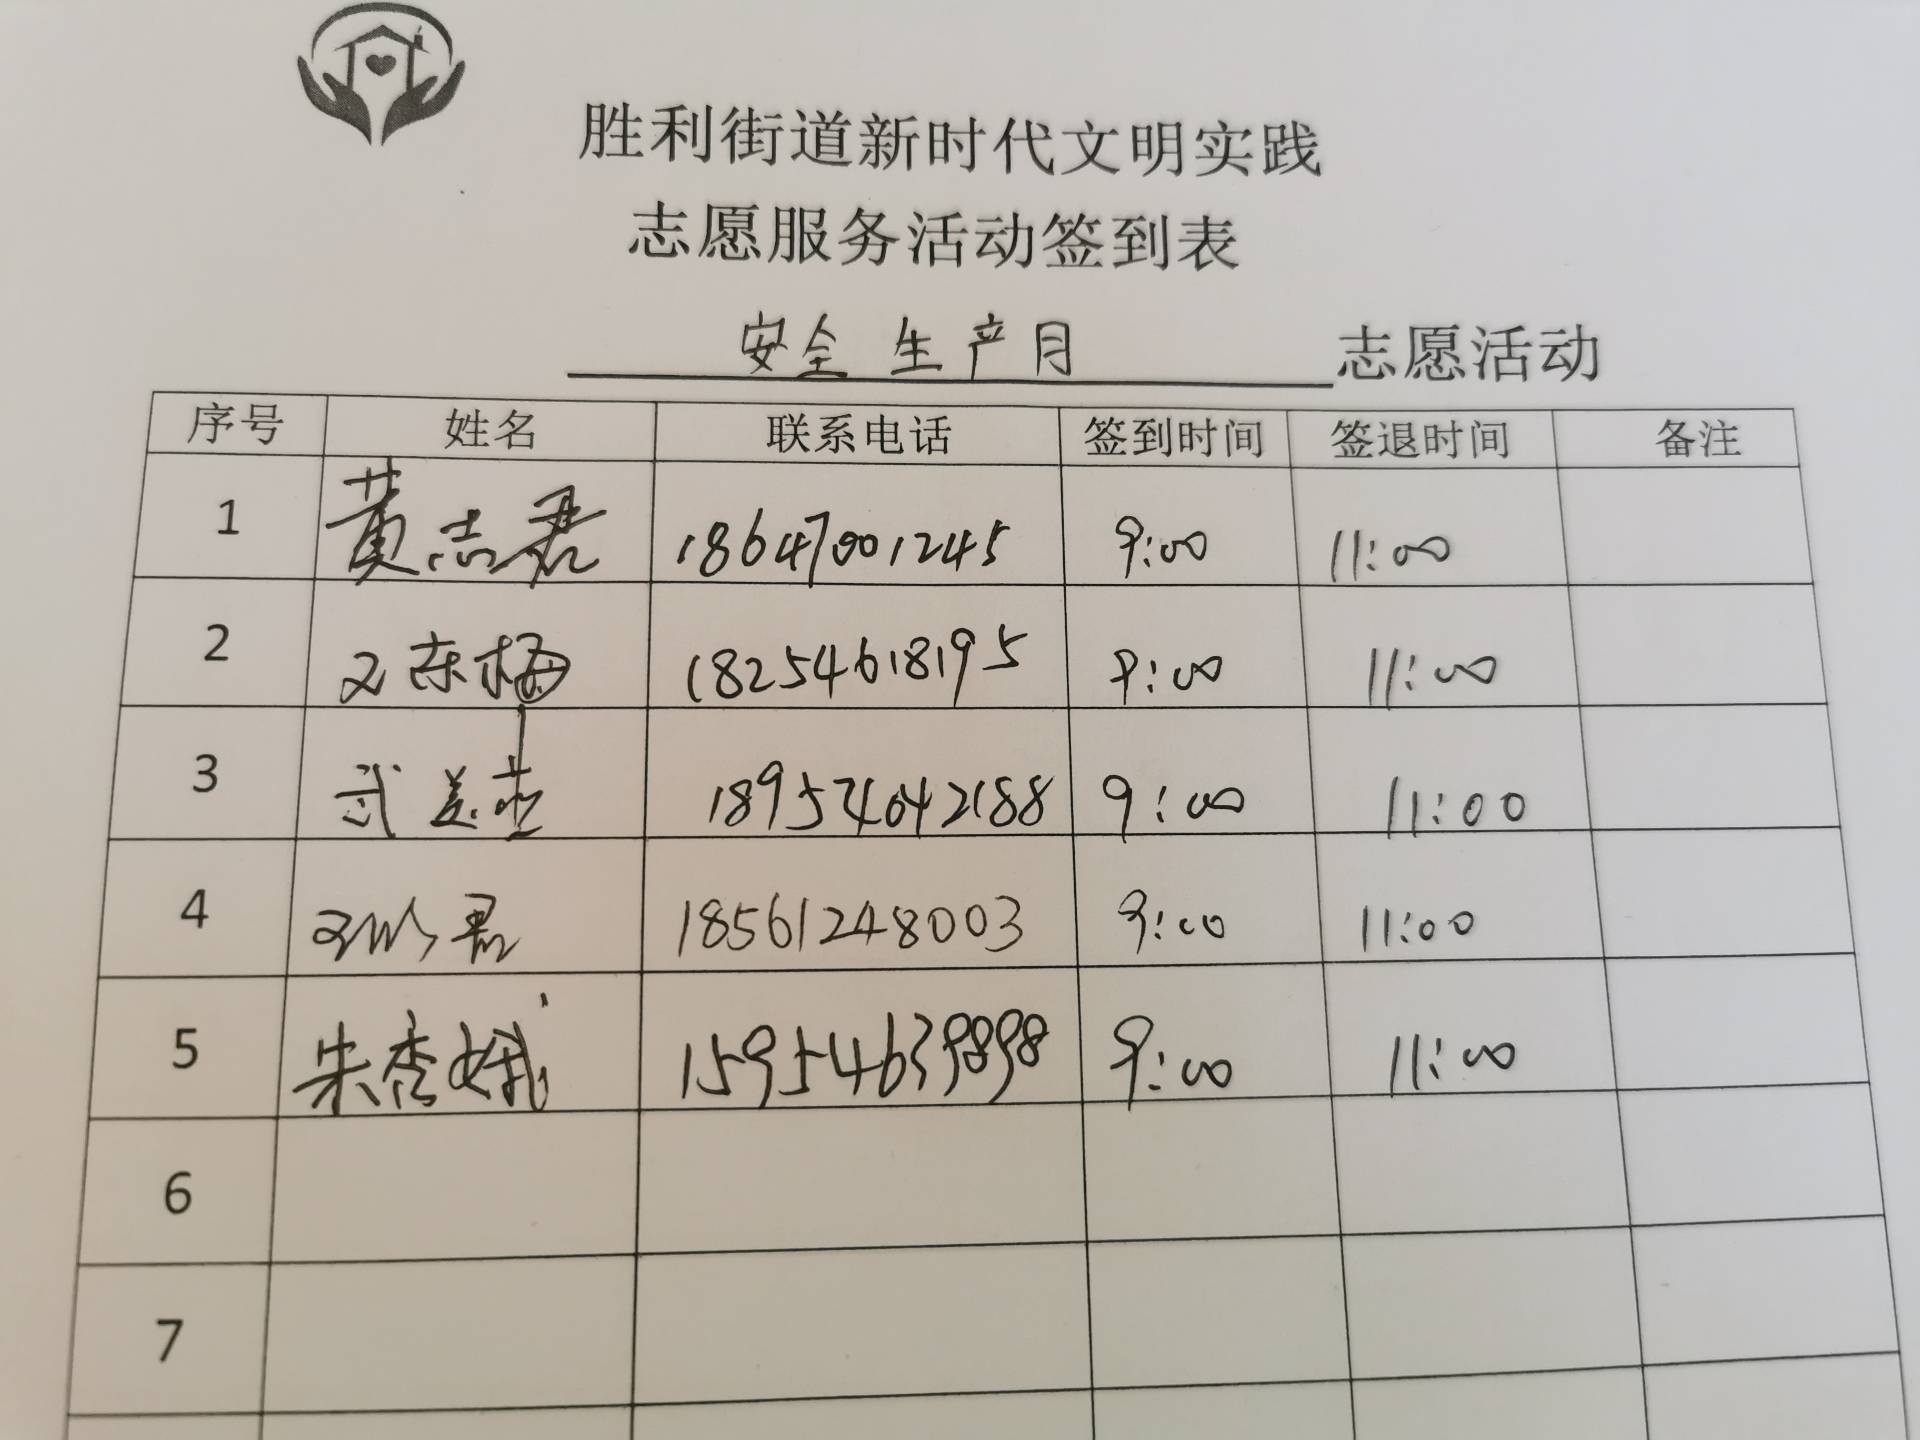 胜利街道新时代文明实践
志愿服务活动签到表
安全生产月志愿活动
序号 姓名 联系电话 签到时间 签退时间 备注
1 黄志君 18647001245 9:00 11:00
2 东梅 18254618195 9:00 11:00
3 武 18954642188 9:00 11:00
4 君 18561248003 9:00 11:00
5 朱秀娥 15954639898 9:00 11:00
6
7